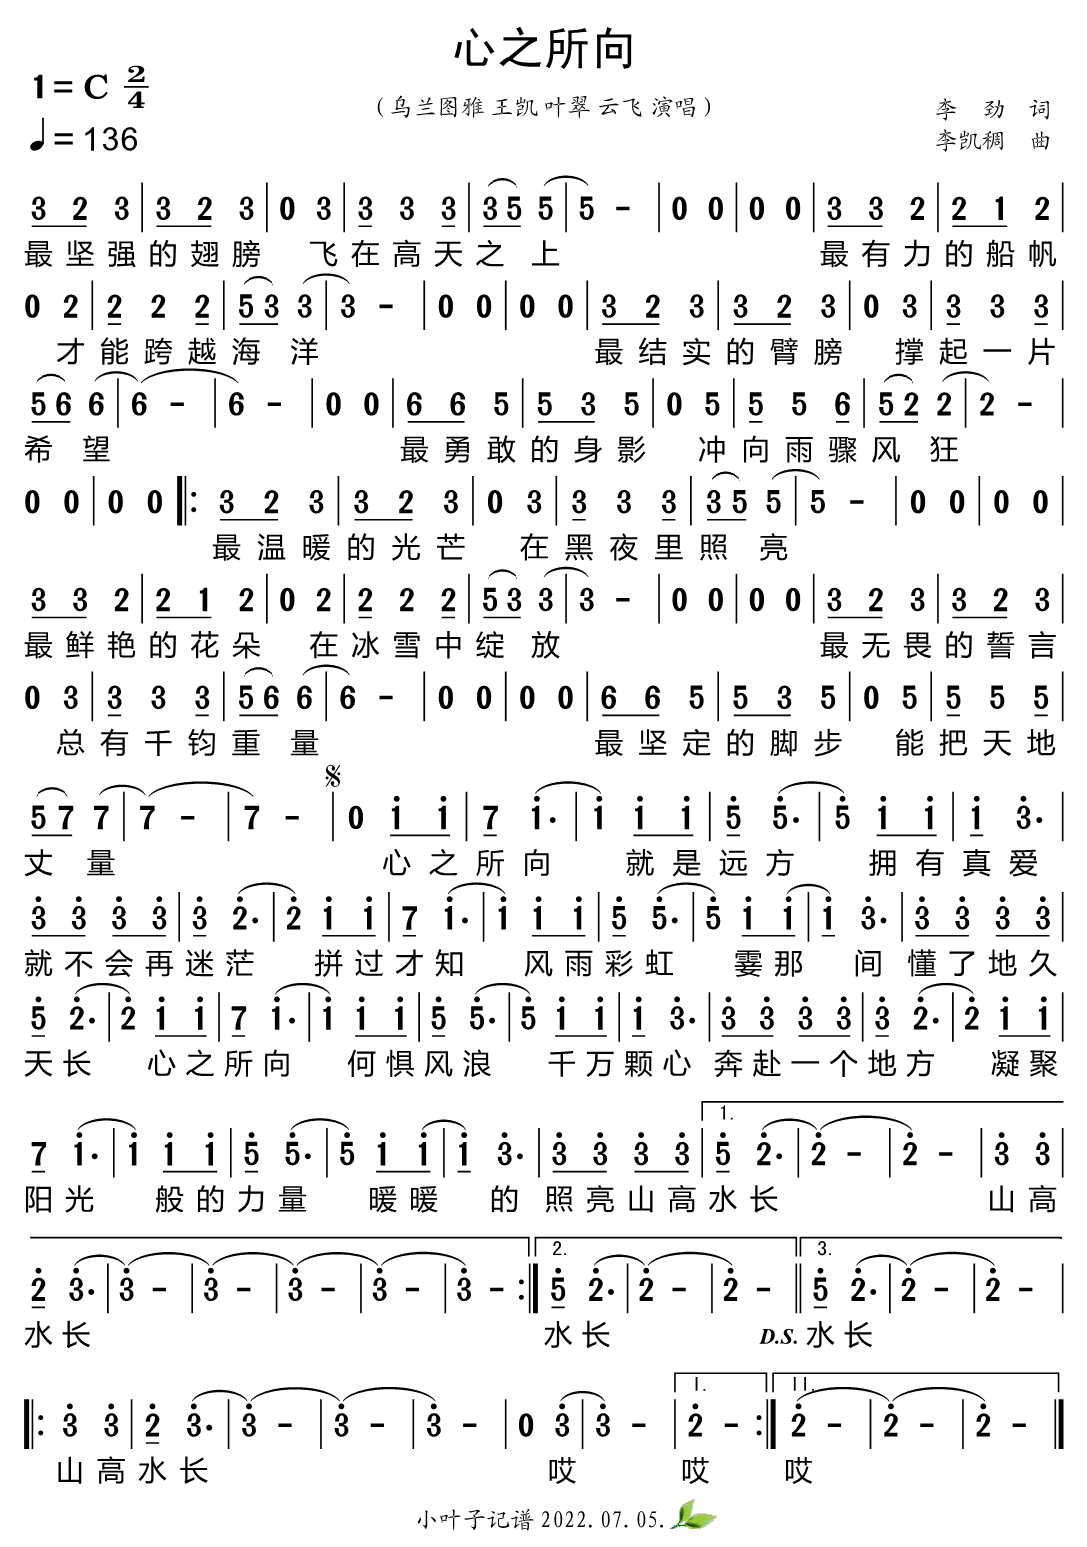 心之所向
1=C 2/4
(乌兰图雅 王凯 叶翠 云飞 演唱)
李 劲 词
♩=136
李凯稠 曲
3 2 3 | 3 2 3 | 0 3 | 3 3 3 | 3 5 5 | 5 - | 0 0 | 0 0 | 3 3 2 | 2 1 2 |
最坚强的翅膀 飞在高天之上 最有力的船帆
0 2 | 2 2 2 | 5 3 3 | 3 - | 0 0 | 0 0 | 3 2 3 | 3 2 3 | 0 3 | 3 3 3 |
才能跨越海洋 最结实的臂膀 撑起一片
5 6 6 | 6 - | 6 - | 0 0 | 6 6 5 | 5 3 5 | 0 5 | 5 5 6 | 5 2 2 | 2 - |
希望 最勇敢的身影 冲向雨骤风狂
0 0 | 0 0 ‖: 3 2 3 | 3 2 3 | 0 3 | 3 3 3 | 3 5 5 | 5 - | 0 0 | 0 0 |
最温暖的光芒 在黑夜里照亮
3 3 2 | 2 1 2 | 0 2 | 2 2 2 | 5 3 3 | 3 - | 0 0 | 0 0 | 3 2 3 | 3 2 3 |
最鲜艳的花朵 在冰雪中绽放 最无畏的誓言
0 3 | 3 3 3 | 5 6 6 | 6 - | 0 0 | 0 0 | 6 6 5 | 5 3 5 | 0 5 | 5 5 5 |
总有千钧重量 最坚定的脚步 能把天地
5 7 7 | 7 - | 7 - | 0 1 1 | 7 1. | 1 1 1 | 5 5. | 5 1 1 | 1 3. |
丈量 心之所向 就是远方 拥有真爱
3 3 3 3 | 3 2. | 2 1 1 | 7 1. | 1 1 1 | 5 5. | 5 1 1 | 1 3. | 3 3 3 3 |
就不会再迷茫 拼过才知 风雨彩虹 霎那 间 懂了地久
5 2. | 2 1 1 | 7 1. | 1 1 1 | 5 5. | 5 1 1 | 1 3. | 3 3 3 3 | 3 2. | 2 1 1 |
天长 心之所向 何惧风浪 千万颗心 奔赴一个地方 凝聚
1.
7 1. | 1 1 1 | 5 5. | 5 1 1 | 1 3. | 3 3 3 3 | 5 2. | 2 - | 2 - | 3 3 |
阳光 般的力量 暖暖 的 照亮山高水长 山高
2. 3.
2 3. | 3 - | 3 - | 3 - | 3 - | 3 - :‖ 5 2. | 2 - | 2 - ‖ 5 2. | 2 - | 2 - |
水长 水长 D.S. 水长
I. II.
‖: 3 3 | 2 3. | 3 - | 3 - | 3 - | 0 3 | 3 - | 2 - :‖ 2 - | 2 - | 2 - ‖
山高水长 哎 哎 哎
小叶子记谱 2022.07.05.